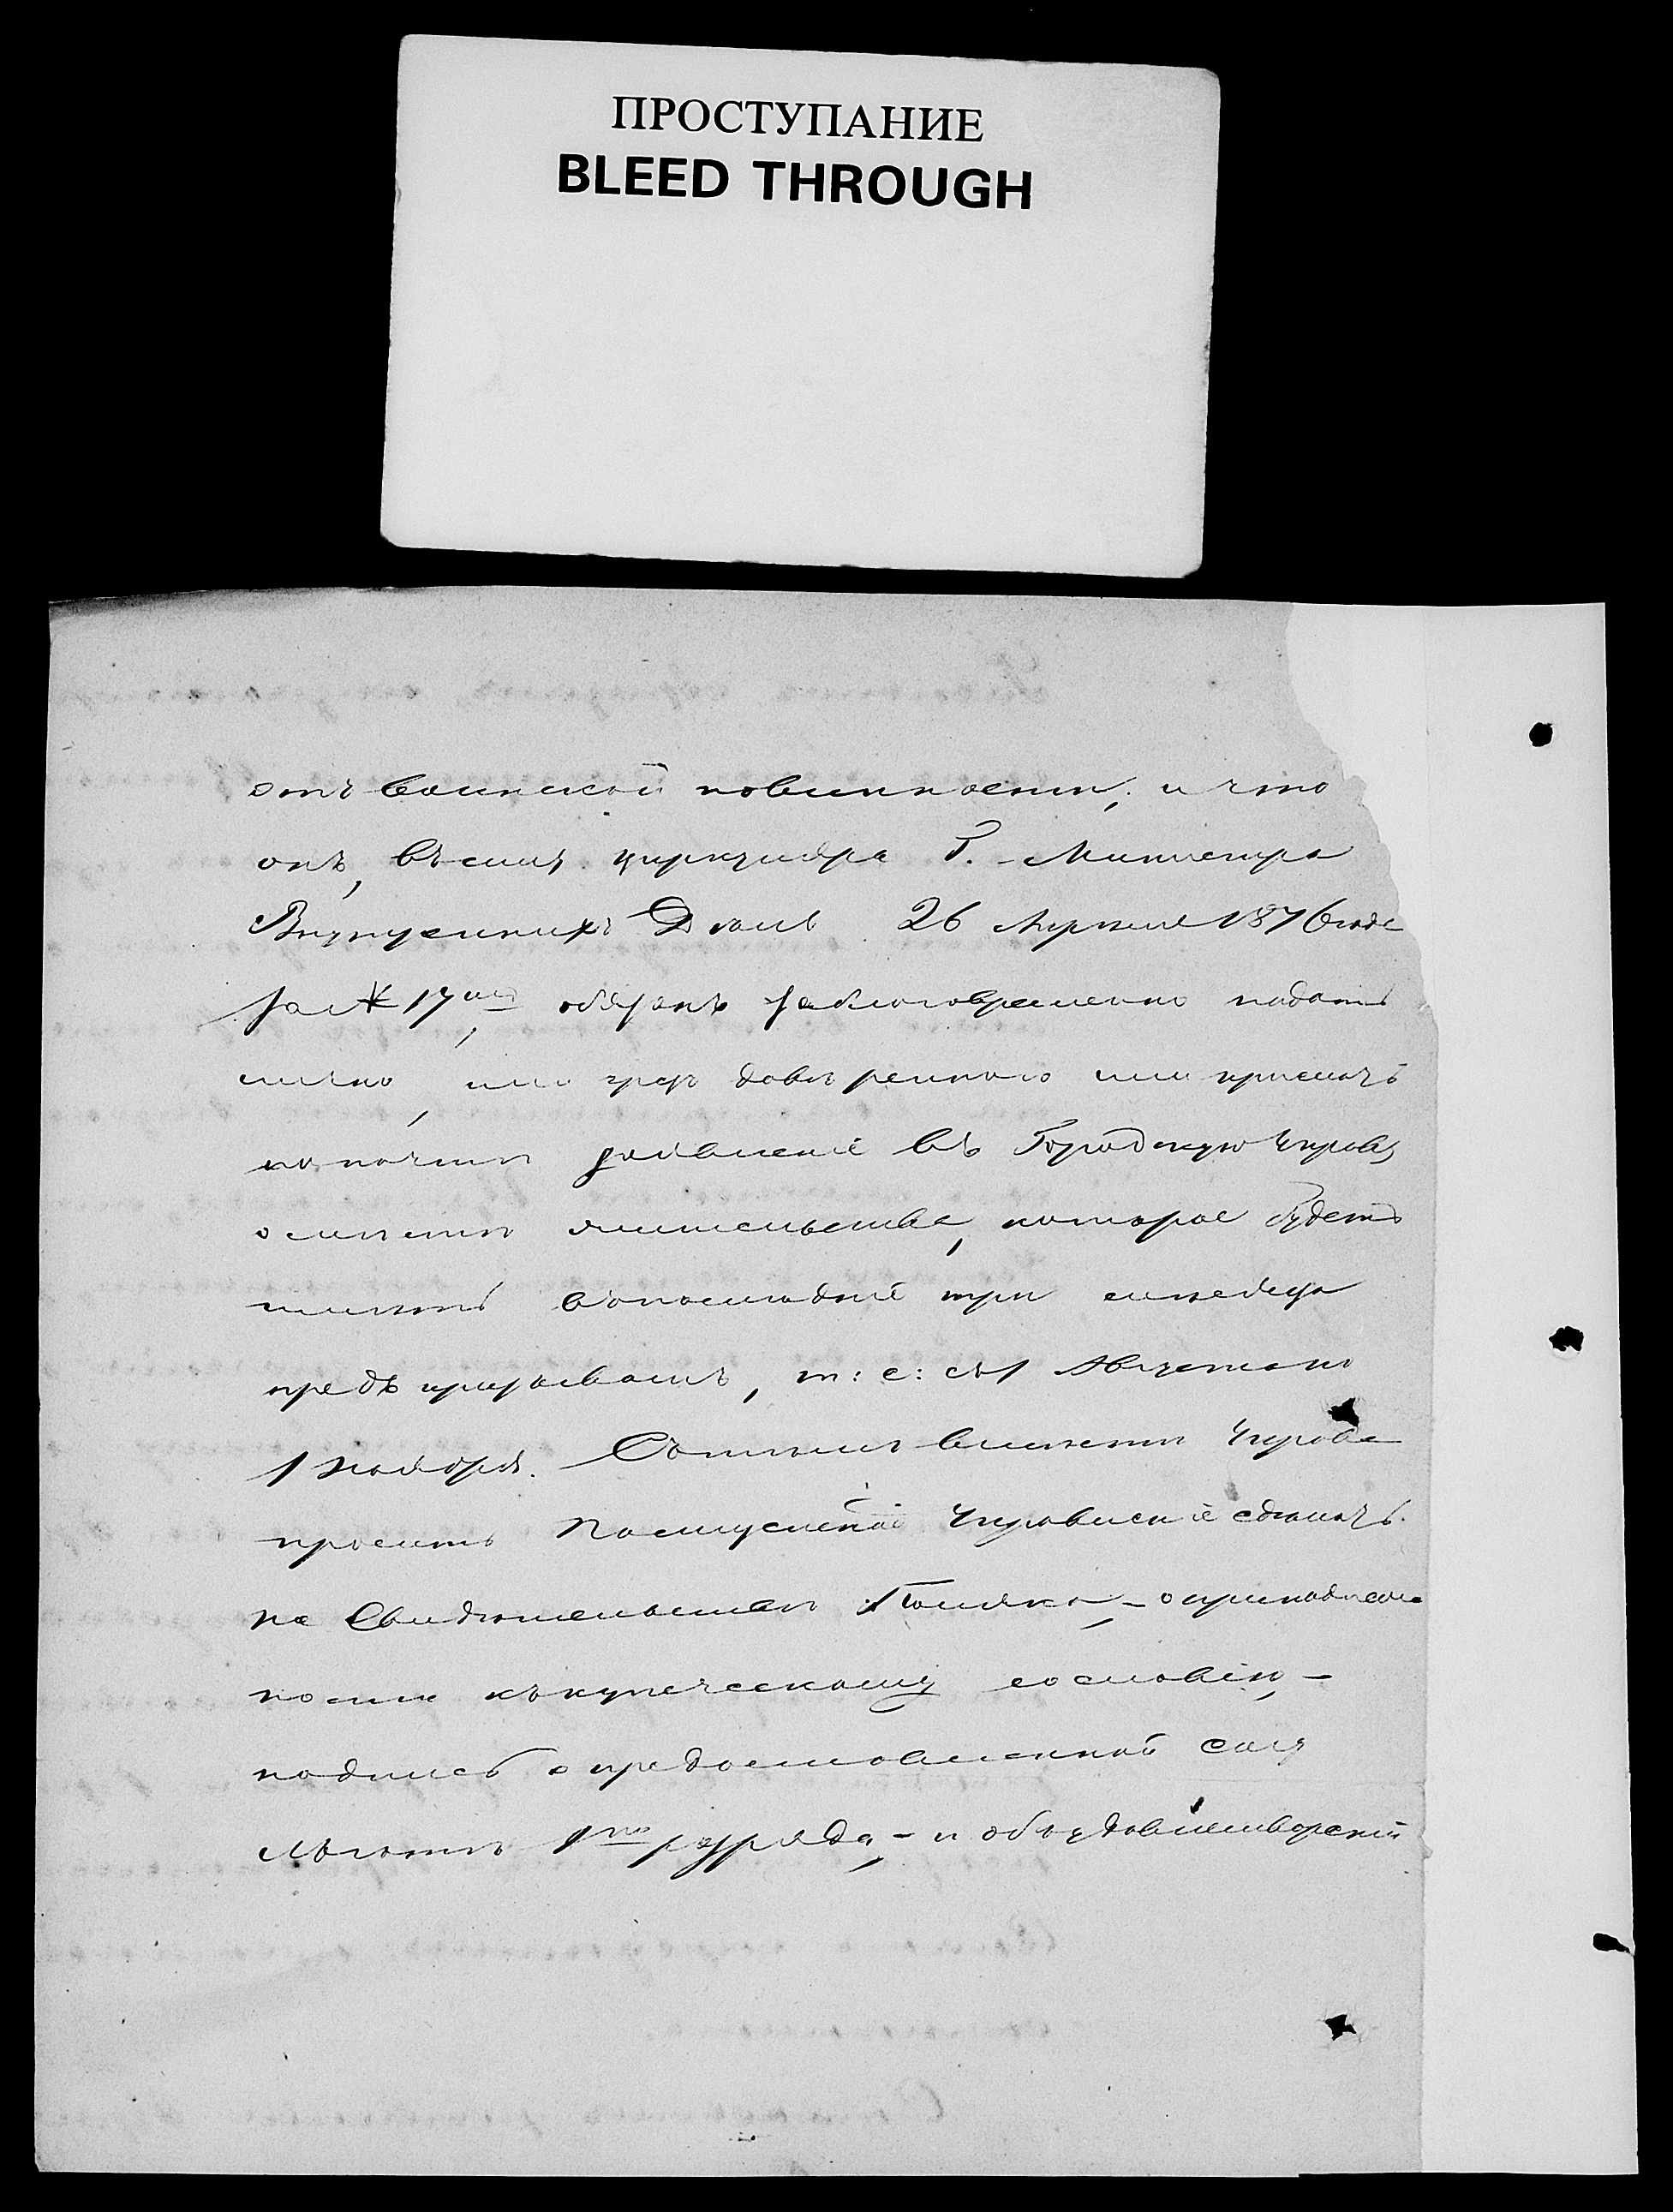 ПРОСТУПАНИЕ
BLEED THROUGH
отъ воинской повинности; и что
онъ, въ силу циркуляра Г. Министра
Внутреннихъ Дѣлъ 26 Апрѣля 1876 года
за № 17, обязанъ заблаговременно подать
лично, или чрезъ довѣреннаго или прислать
по почтѣ заявленіе въ Городскую Управу
о мѣстѣ жительства, которое будетъ
имѣть въ послѣдніе три мѣсяца
предъ призывомъ, т: е: съ 1 Августа по
1 Ноября. Съ тѣмъ вмѣстѣ Управа
проситъ Управленіе сдѣлать
на Свидѣтельствѣ Поляка, – о принадлеж
ности къ купеческому сословію, –
надпись о предоставленной ему
льготѣ 1го разряда, – и объ удовлетвореніи